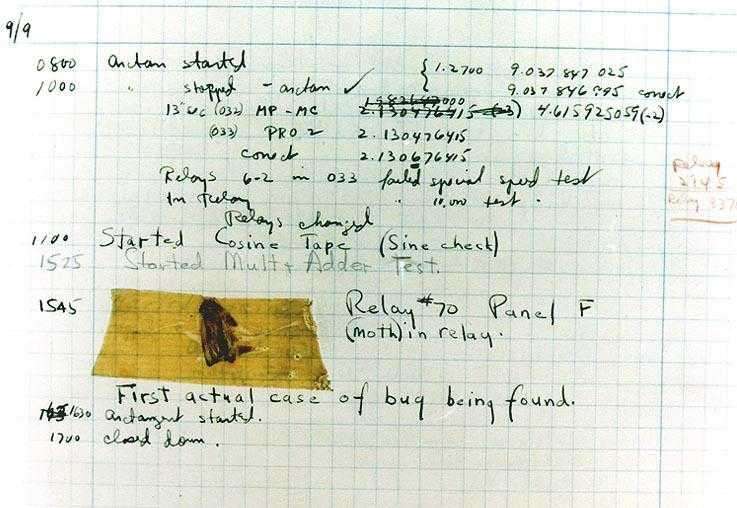 9/9
0800 antan started { 1.2700 9.037 847 025
1000 " stopped - antan ✓ 9.037 846 995 correct
13" uc (032) MP - MC 2.130476415 (-3) 4.615925059(-2)
(033) PRO 2 2.130476415
correct 2.130676415
Relays 6-2 in 033 failed special speed test
in relay " 10.000 test .
Relays changed
1100 Started Cosine Tape (Sine check)
1525 Started Mult + Adder Test.
1545 Relay #70 Panel F
(moth) in relay.
First actual case of bug being found.
1630 antangent started.
1700 closed down .
relay
2145
relay 337